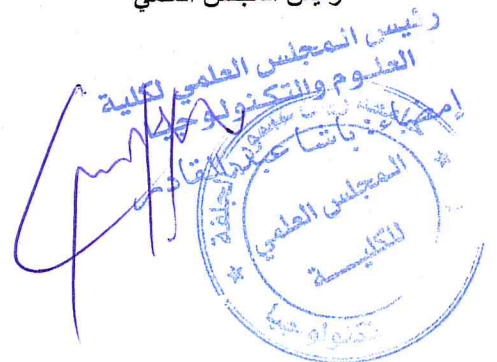 رئيس المجلس العلمي
رئيس المجلس العلمي لكلية
العلوم والتكنولوجيا
إمضاء: باشا عبد القادر
الجلفة
المجلس العلمي
للكليـــة
تكنولوجيا